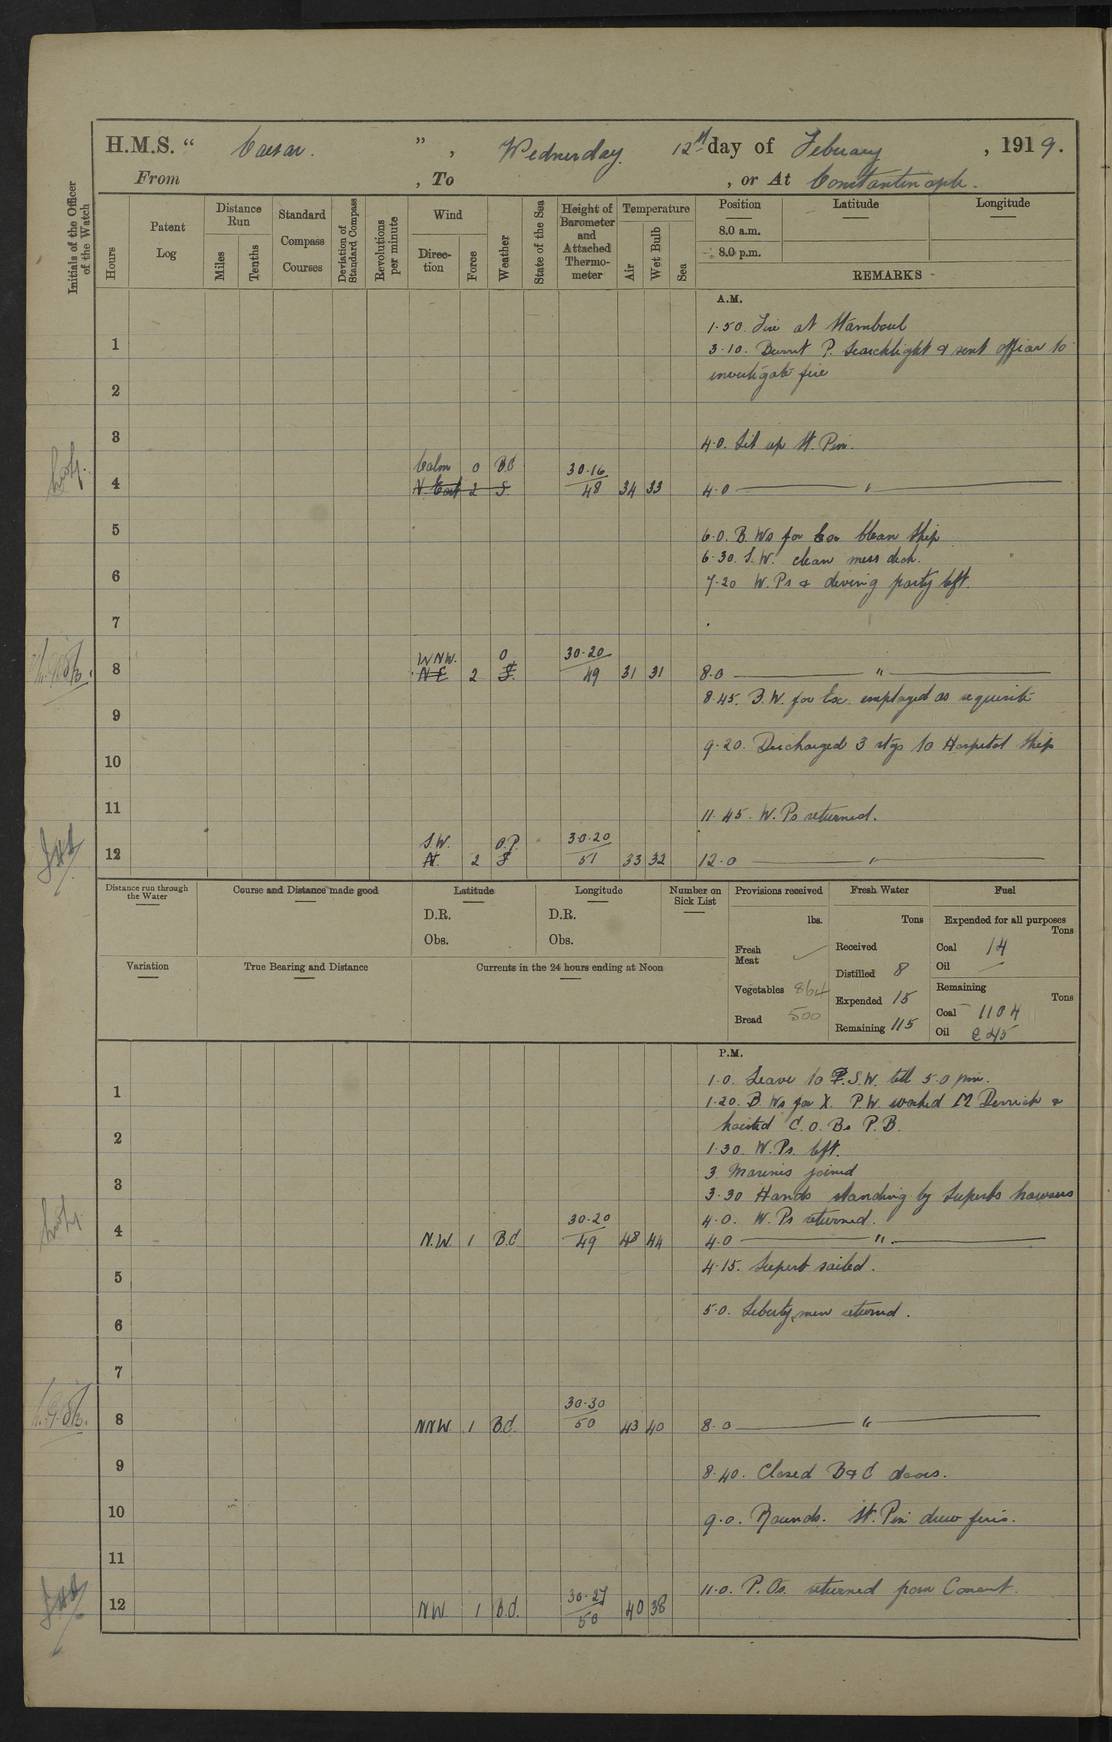 H.M.S. "Caesar.", Wednesday 12th day of Febuary, 1919.
From , To , or At Constantinople.
Initials of the Officer of the Watch
Hours
Patent Log
Distance Run
Miles
Tenths
Standard Compass Courses
Deviation of Standard Compass
Revolutions per minute
Wind
Direction
Force
Weather
State of the Sea
Height of Barometer and Attached Thermometer
Temperature
Air
Wet Bulb
Sea
Position
Latitude
Longitude
8.0 a.m.
8.0 p.m.
REMARKS
A.M.
1·50. Fire at Stamboul
1
3·10. Burnt P. Searchlight & sent officer to
investigate fire
2
3
4·0. Lit up St. Pin.
Calm 0 B.C 30·16
4 N. East 2 S. 48 34 33 4·0 "
5
6·0. B. Ws for Ex Clean Ship
6·30. S.W. clean mess deck.
6
7·20 W.Ps & diving party left.
7
WNW. O 30·20
8 N E 2 S. 49 31 31 8·0 "
8·45. B.W. for Exc. employed as requisite
9
9·20. Discharged 3 rtgs to Hospital Ship
10
11
11·45. W. Ps returned.
S.W. O.P. 30·20
12 N. 2 S 51 33 32 12·0 "
Distance run through the Water
Course and Distance made good
Latitude
D.R.
Obs.
Longitude
D.R.
Obs.
Number on Sick List
Provisions received
lbs.
Fresh Meat
Vegetables 864
Bread 500
Fresh Water
Tons
Received
Distilled 8
Expended 15
Remaining 115
Fuel
Expended for all purposes
Tons
Coal 14
Oil
Remaining
Tons
Coal 1104
Oil 245
Variation
True Bearing and Distance
Currents in the 24 hours ending at Noon
P.M.
1·0. Leave to P.S.W. till 5·0 pm.
1
1·20. B Ws for X. P.W. worked M Derrick &
hoisted C.O.Bs P.B.
2
1·30. W.Ps. left.
3 Marines joined
3
3·30 Hands standing by Superbs hawsers
4·0. W. Ps returned.
30·20
4 N.W. 1 B.C 49 48 44 4·0 "
4·15. Superb sailed.
5
5·0. Liberty men returned.
6
7
30·30
8 NNW. 1 B.C. 50 43 40 8·0 "
9
8·40. Closed B & C doors.
10
9·0. Rounds. St. Pin drew fires.
11
11·0. P.Os. returned from
30·27
12 NW. 1 b.c. 50 40 38